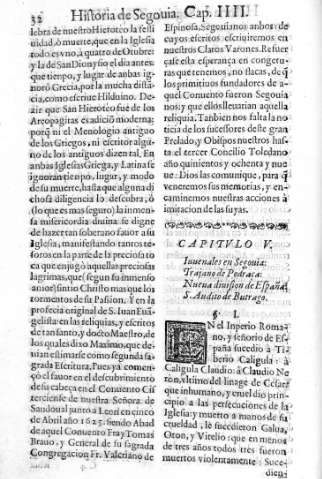 32 Historia de Segouia. Cap. IIII.
lebra de nuestro Hieroteo la festi
uidad, ò muerte, que en la Iglesia
todo es vno, à quatro de Otubre:
y la de San Dionysio el dia antes:
que tiempo, y lugar de ambas ig-
norò Grecia, por la mucha distã-
cia, como escriue Hilduino. De-
zir que San Hieroteo fue de los
Areopagitas es adicion moderna:
porq̃ ni el Menologio antiguo
de los Griegos, ni escritor algu-
no de los antiguos dizen tal. En
ambas Iglesias Griega, y Latina se
ignorã tienpo, lugar, y modo
de su muerte, hasta que alguna di
chosa diligencia lo descubra, ò
(lo que es mas seguro) la inmen-
sa misericordia diuina se digne
de hazer tan soberano fauor a su
Iglesia, manifestando tantos te-
soros en la parte de la preciosa to
ca que enjugò aquellas preciosas
lagrimas, que (segun su inmenso
amor) sintio Christo mas que los
tormentos de su Pasion. Y en la
profecia original de S. Iuan Euã-
gelista: en las reliquias, y escritos
de tan santo, y docto Maestro, de
los quales dixo Maximo, que de-
uian estimarse como segunda sa-
grada Escritura. Pues ya comen-
çò el fauor en el descubrimiento
de su cabeça en el Conuento Cis
terciense de nuestra Señora de
Sandoual junto a Leon en cinco
de Abril año 1625. siendo Abad
de aquel Conuento Fray Tomas
Brauo, y General de su sagrada
Congregacion Fr. Valeriano de
Espinosa, Segouianos anbos: de
cuyos escritos escriuiremos en
nuestros Claros Varones. Refuer
ça se esta esperança en congetu-
ras que tenemos, no flacas, de q̃
los primitiuos fundadores de a-
quel Conuento fueron Segouia
nos; y que ellos lleuarian aquella
reliquia. Tanbien nos falta la no
ticia de los sucesores deste gran
Prelado, y Obispos nuestros has-
ta el tercer Concilio Toledano
año quinientos y ochenta y nue
ue. Dios las comunique, para q̃
veneremos sus memorias, y en-
caminemos nuestras acciones à
imitacion de las suyas.
CAPITVLO V.
Iuuenales en Segouia:
Trajano de Pedraça:
Nueua diuision de España:
S. Audito de Butrago.
§. I.
EN el Inperio Roma-
no, y señorio de Es-
paña sucedio à Ti-
berio Caligula: à
Caligula Claudio: à Claudio Ne
ron, vltimo del linage de Cesar:
que inhumano, y cruel dio prin-
cipio a las persecuciones de la
Iglesia: y muerto a manos de su
crueldad, le sucedieron Galua,
Oton, y Vitelio: que en menos
de tres años todos tres fueron
muertos violentamente. Suce-
dien-